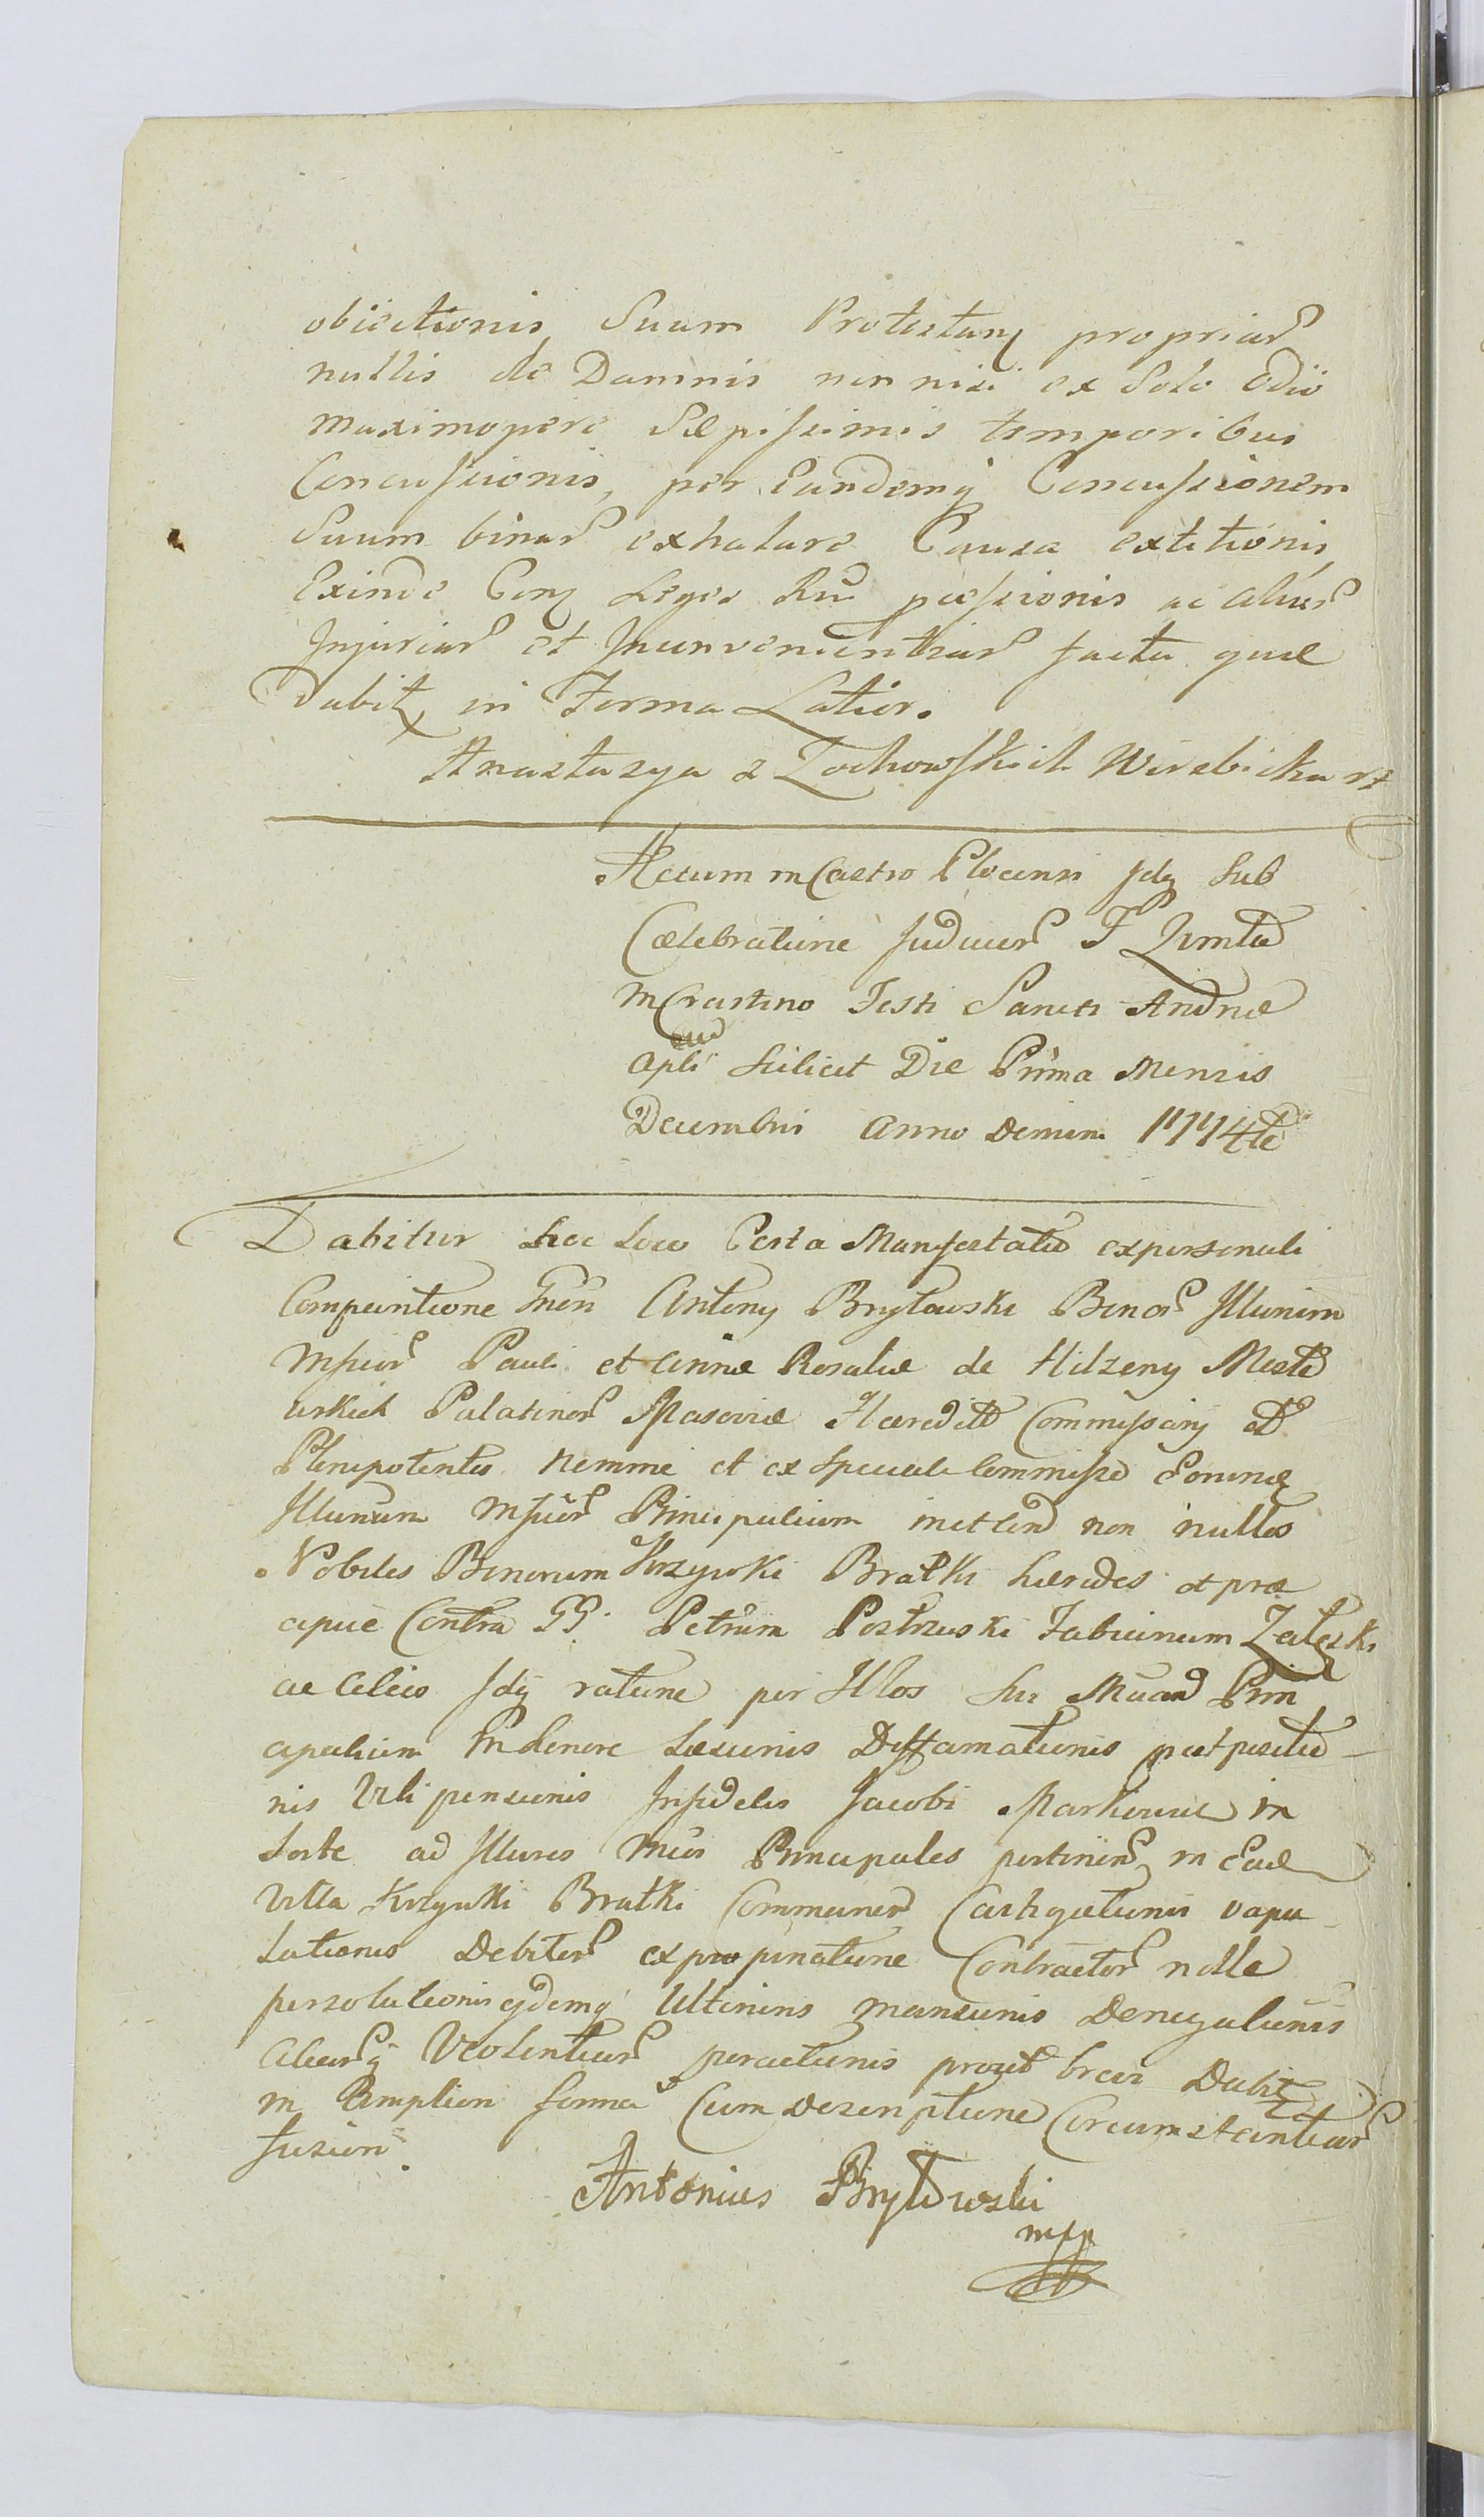 obiectionis Suam Protestanq propriar
nullis de Damnis non nisi ex Solo Odio
maximopere Sæpissimis temporibus
Concussionis, per Eundemq Concussionem
Suum binar exhalare Causa extitionis
Exinde Conq Leges pæssionis ac aliar
Injuriar et Inconvenientiar facta quæ
dabitq in Forma Latior.
Anastazya z Zochowskich Wirzbicka
Actum in Castro Plocensi fdq Sub
Cœlebratione Judicior
in Crastino Festi Sancti Andreæ
Apli scilicet Die Prima Mensis
Decembris Anno Domini 1774to
Dabitur hoc loco Certa Manifestatio ex personali
Comparitione Gnēi Antony Brytowski Bonor Illunim
Mfcor Pauli et Annæ Rosaliæ de Hilzeny Mosto
wskich Palatinor Masoviæ Hæredit Commissarij et
Plenipotentis Nomine et ex Speciali Commisso Eorundq
Illunim Mfcor Principalium non nullos
Nobiles Bonorum Krzywki Bratki hæredes et præ
cipue Contra GG. Petrum Postruski Fabianum Załęski
ac Alios fdq ratione per Illos Sui Prin
cipalium In honore Læsionis Diffamationis postposito
nis Vilipensionis Infidelis Jacobi Markowic in
Sorte ad Illures Mcos Principales pertinen in Ead
Villa Krzywki Bratki Commoren Castigationis vapu
lationis Debitor ex propinatione Contractor nolle
persolutionis ejdemq Ulterioris mansionis Denegationis
Aliarq Violentiar peractionis prout brevi Dabit
in Ampliori forma Cum descriptione Circumstantiar
fusiori.
Antonius Brytowski
mpp